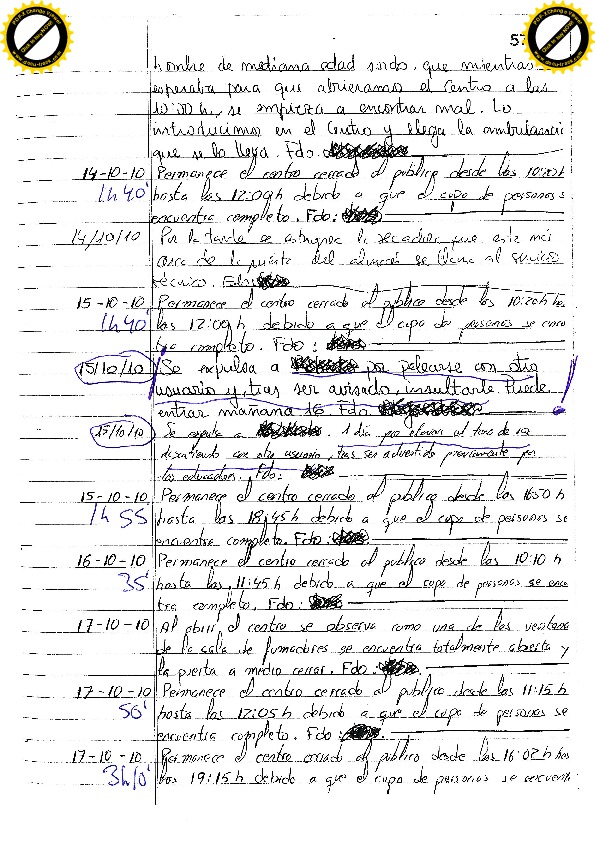 57
hombre de mediana edad sordo, que mientras
esperaba para que abrieramos el centro a las
10:00 h, se empieza a encontrar mal. Lo
introducimos en el Centro y llega la ambulancia
que se lo lleva. Fdo.
14-10-10 Permanece el centro cerrado al público desde las 10:20 h
1h 40' hasta las 12:00h debido a que el cupo de personas s
encuentra completo. Fdo:
14/10/10 Por la tarde se estropea la secadora que esta más
cerca de la puerta del almacén se llama al servicio
técnico.
15-10-10 Permanece el centro cerrado al público desde las 10:20h has
1h 40' las 12:00h debido a que el cupo de personas se encu
tra completo. Fdo:
15/10/10 Se expulsa a por pelearse con otro
usuario y, tras ser avisado, insultarle. Puede
entrar mañana 16 Fdo
15/10/10 Se expulsa a 1 día por elevar el tono de voz
discutiendo con otro usuario, tras ser advertido previamente por
los educadores. Fdo:
15-10-10 Permanece el centro cerrado al público desde las 16:50 h
1h 55' hasta las 18:45h debido a que el cupo de personas se
encuentra completo. Fdo:
16-10-10 Permanece el centro cerrado al publico desde las 10:10 h
35' hasta las 11:45 h debido a que el cupo de personas se encu
tra completo. Fdo:
17-10-10 Al abrir el centro se observa como una de las ventana
de la sala de fumadores se encuentra totalmente abierta y
la puerta a medio cerrar. Fdo:
17-10-10 Permanece el centro cerrado al público desde las 11:15 h
50' hasta las 12:05 h debido a que el cupo de personas se
encuentra completo. Fdo:
17-10-10 Permanece el centro cerrado al público desde las 16:02 h has
3h 10' las 19:15 h debido a que el cupo de personas se encuent